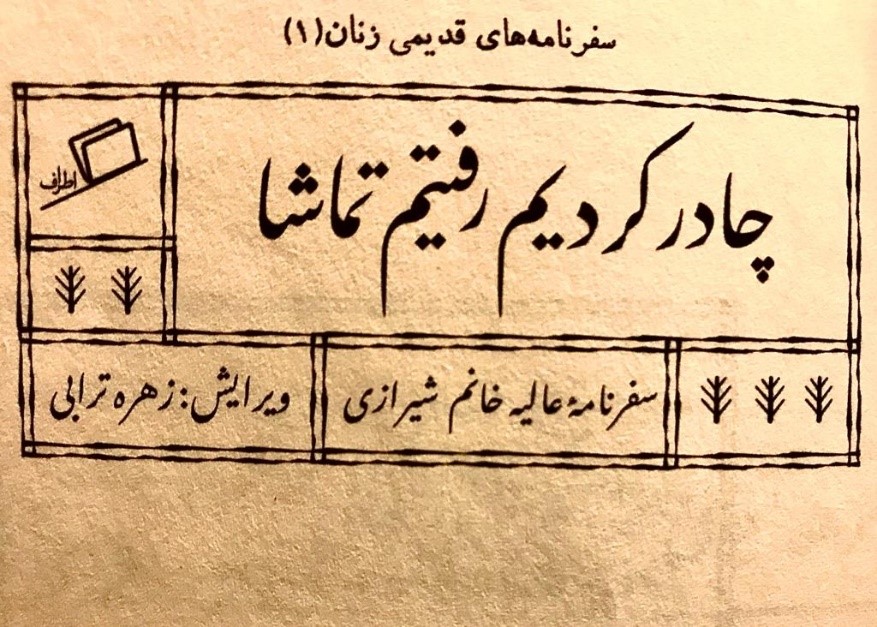 سفرنامه‌های قدیمی زنان (۱)
چادر کردیم رفتیم تماشا
اطراف
سفرنامهٔ عالیه خانم شیرازی
ویرایش: زهره ترابی